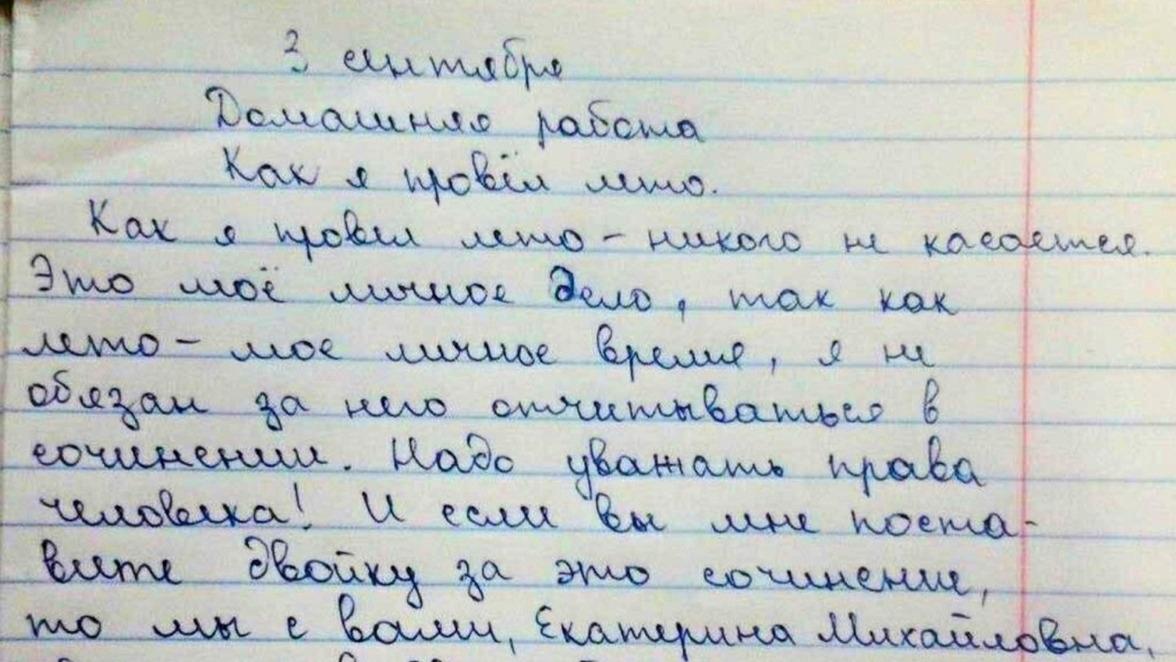 3 сентября
Домашняя работа
Как я провёл лето.
Как я провёл лето - никого не касается.
Это моё личное дело, так как
лето - мое личное время, я не
обязан за него отчитываться в
сочинении. Надо уважать права
человека! И если вы мне поста-
вите двойку за это сочинение,
то мы с вами, Екатерина Михайловна,